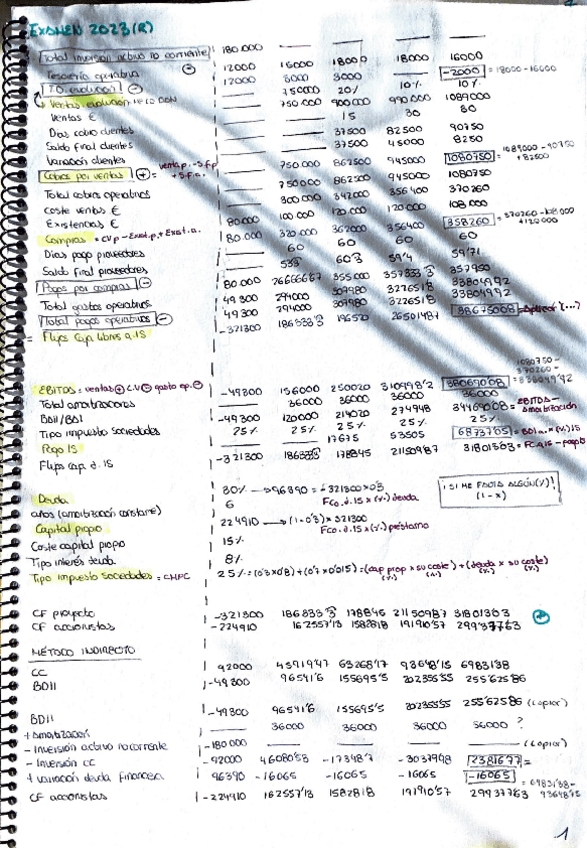 EXAMEN 2023 (R)
Total inversión activo no corriente 180.000 — — — —
Tesorería operativa 12000 16000 18000 18000 16000
12000 3000 3000 — -2000 = 18000-16000
Ventas €  — 750.000 900.000 990.000 1089000
Días cobro clientes — — 15 30 30
Saldo final clientes — — 37500 82500 90750
Variación clientes — — 37500 45000 8250
Cobros por ventas + = — 750000 862500 945000 1080750 = 1089000 - 90750 + 82500
Total cobros operativos — 750000 862500 945000 1080750
Coste ventas € — 300000 342000 356400 370260
Existencias € 80.000 100.000 120.000 120.000 108.000
Compras = CVp - Exist.p. + Exist.a. 80.000 320.000 362000 356400 358260 = 370260-108000 +120000
Días pago proveedores — 60 60 60 60
Saldo final proveedores
Pagos por compras - 80.000 26666667 355.000 3573333 357950
Total gastos operativos 49300 294000 309980 3226518 33804992
Total pagos operativos - 49300 294000 309980 3226518 33804992
= Flujos Caja libres a.IS -321300 1863333 19652 26501487 38675008
EBITDA = ventas + C.V - gasto op. - -49300 156000 250020 3109982 38069008 = 1080750 - 370260 - 33804992
Total amortizaciones 36000 36000 36000 36000
BDII/BDI -49300 120000 214020 274948 34469008 = EBITDA - amortización
Tipo impuesto sociedades 25% 25% 25% 25% 25%
Pago IS — — 17675 53505 6873765 = BDI ... x (%) IS
Flujos Caja d. IS -321300 1863333 178845 21150987 31801303 = FCaIS - pago IS
Deuda 30% → 96390 = -321300 x 0'3
FCo.d.IS x (%) deuda
¡SI ME FALTA ALGÚN (%)!
(1-x)
años (amortización constante) 6
Capital propio 224910 → (1-0'3) x 321300
FCo.d.IS x (%) préstamo
Coste capital propio 15%
Tipo interés deuda 8%
Tipo impuesto sociedades = CMPC 25% = (0'3x0'8) + (0'7x0'015) = (cap prop x su coste) + (deuda x su coste)
(%) (%) (%) (%)
CF proyecto -321300 1868333 178845 21150987 31801303
CF accionistas -224910 16255713 1582818 19191057 29937763
MÉTODO INDIRECTO
CC 92000 4591947 6326817 9364815 6983138
BDII -49300 965416 1556955 20235555 25562586
BDII -49300 965416 1556955 20235555 25562586 (copiar)
+ Amortización 36000 36000 36000 36000 ?
- Inversión activo no corriente -180000 — — — — (copiar)
- Inversión CC -92000 4608053 -173487 -3037998 2381677 =
+ Variación deuda financiera 96390 -16065 -16065 -16065 -16065 = 6983138 - 9364815
CF accionistas -224910 16255713 1582818 19191057 29937763
1